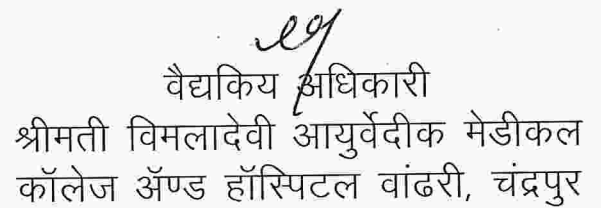 वैद्यकिय अधिकारी
श्रीमती विमलादेवी आयुर्वेदीक मेडीकल
कॉलेज ॲण्ड हॉस्पिटल वांढरी, चंद्रपुर